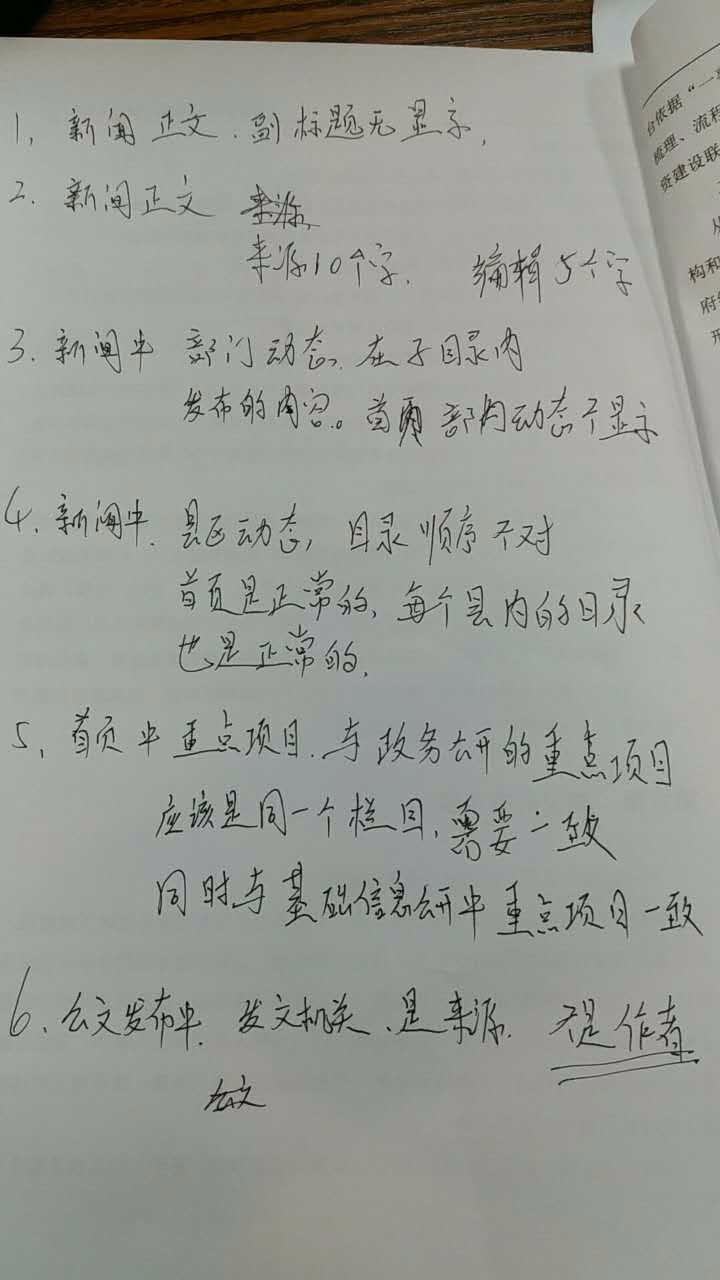 1、新闻正文、副标题无显示,
2. 新闻正文 来源
来源10个字. 编辑5个字
3. 新闻中 部门动态. 在子目录内
发布的内容。首页部门动态不显示
4. 新闻中. 县区动态, 目录顺序不对
首页是正常的, 每个县内的目录
也是正常的.
5、首页中重点项目. 与政务公开的重点项目
应该是同一个栏目, 需要一致
同时与基础信息公开中重点项目一致
6、公文发布中. 发文机关、是来源. 不是作者
公文
台依据“一
梳理、流程
资建设联
从
构和
府